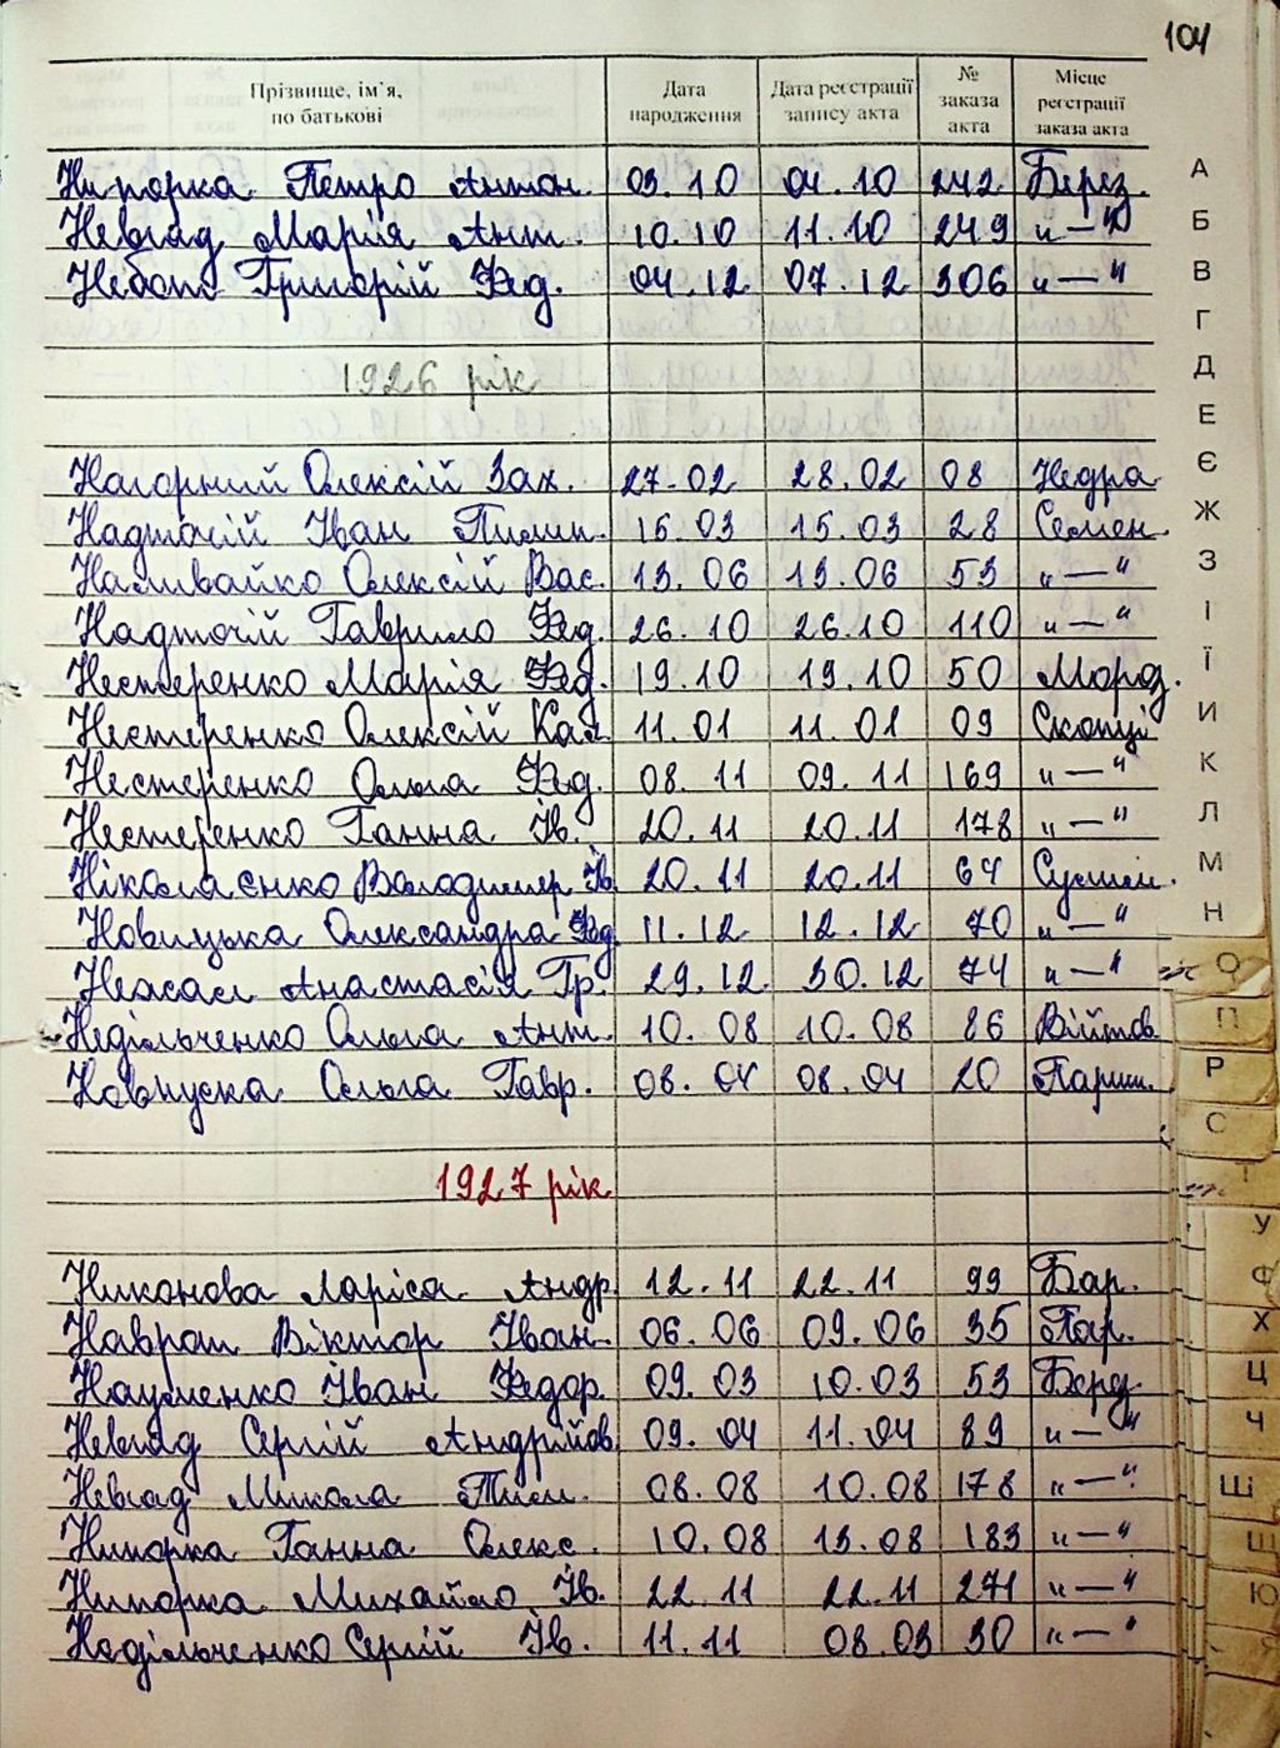 104
Прізвище, ім’я, по батькові Дата народження Дата реєстрації запису акта № заказа акта Місце реєстрації заказа акта
Нипорка Петро Антон. 03.10 04.10 242 Берез.
Невгад Марія Ант. 10.10 11.10 249 "—"
Небат Григорій Фед. 04.12 07.12 306 "—"
1926 рік
Нагорний Олексій Зах. 27.02 28.02 08 Недра
Надточій Іван Пилип. 15.03 15.03 28 Семен.
Наливайко Олексій Вас. 13.06 13.06 53 "—"
Надточій Гаврило Фед. 26.10 26.10 110 "—"
Нестеренко Марія Фед. 19.10 19.10 50 Мороз.
Нестеренко Олексій Кал. 11.01 11.01 09 Скопці
Нестеренко Ольга Фед. 08.11 09.11 169 "—"
Нестеренко Ганна Ів. 20.11 20.11 178 "—"
Ніколаєнко Володимир Ів. 20.11 20.11 64 Сулим.
Новицька Олександра Фед. 11.12 12.12 70 "—"
Анастасія Гр. 29.12 30.12 74 "—"
Недільченко Ольга Ант. 10.08 10.08 86 Війтов.
Ольга Гавр. 08.04 08.04 20 Париш.
1927 рік
Никонова Лариса Андр. 12.11 22.11 99 Бар.
Наврат Віктор Іван. 06.06 09.06 35 Пар.
Науменко Іван Федор. 09.03 10.03 53 Берез.
Невгад Сергій Андрійов. 09.04 11.04 89 "—"
Невгад Микола Тим. 08.08 10.08 178 "—"
Нипорка Ганна Олекс. 10.08 13.08 183 "—"
Нипорка Михайло Ів. 22.11 22.11 271 "—"
Недільченко Сергій Ів. 11.11 08.03 30 "—"
А
Б
В
Г
Д
Е
Є
Ж
З
І
Ї
И
К
Л
М
Н
О
П
Р
С
Т
У
Ф
Х
Ц
Ч
Ш
Щ
Ю
Я